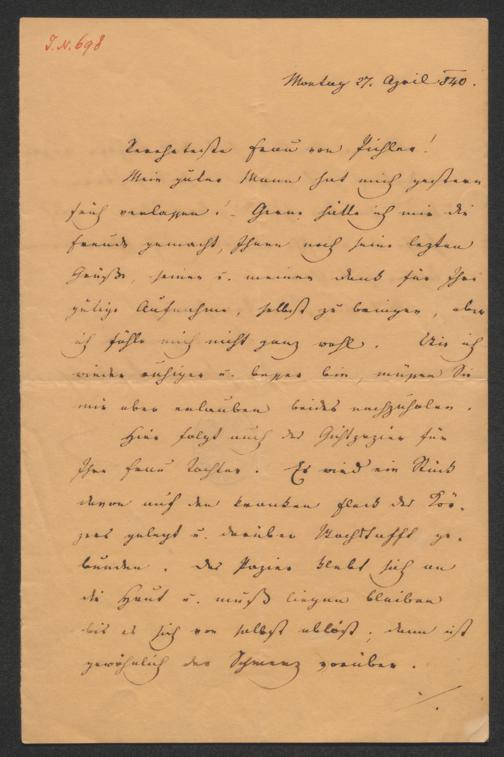 J.N. 698
Montag 27. April 840.
Verehrteste Frau von Pichler!
Mein guter Mann hat mich gestern
früh verlassen! Gerne hätte ich mir die
Freude gemacht, Ihnen noch seine lezten
Grüße, seinen u. meinen Dank für Ihre
gütige Aufnahme, selbst zu bringen, aber
ich fühle mich nicht ganz wohl. Wie ich
wieder ruhiger u. besser bin, müssen Sie
mir aber erlauben beides nachzuholen.
Hier folgt auch das Gichtpapier für
Ihre Frau Tochter. Es wird ein Stück
davon auf den kranken Fleck des Kör-
pers gelegt u. darüber Wachstafft ge-
bunden. Das Papier klebt sich an
die Haut u. muß liegen bleiben
bis es sich von selbst ablöst; dann ist
gewöhnlich der Schmerz vorüber.
./.